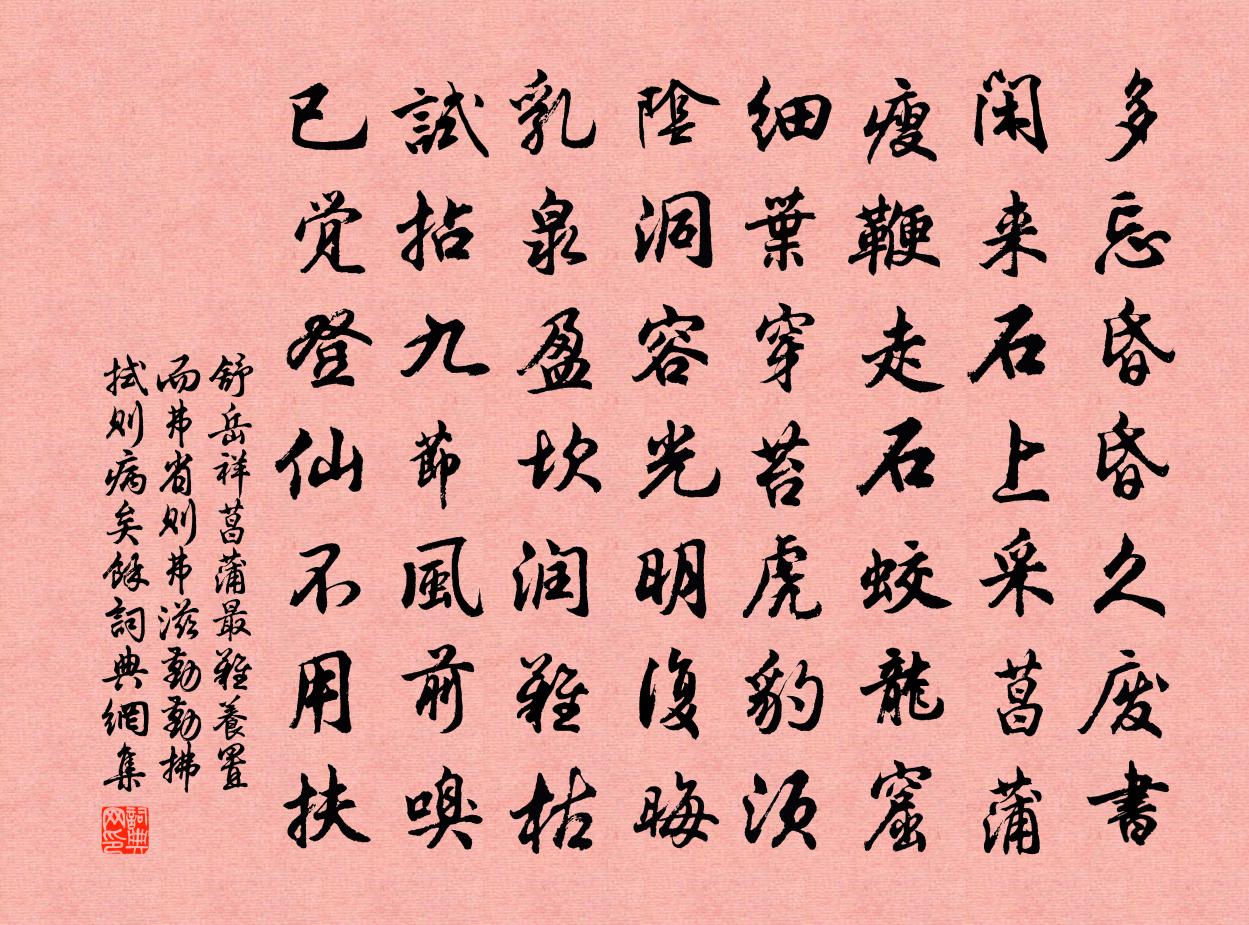 多忘昏昏久废書
闲来石上采菖蒲
瘦鞭走石蛟龍窟
细葉穿苔虎豹须
陰洞容光明復晦
乳泉盈坎润難枯
試拈九節風前嗅
已觉登仙不用扶
舒岳祥菖蒲最難養置
而弗省则弗滋勤勤拂
拭则病矣餘詞典網集
詞典
网印